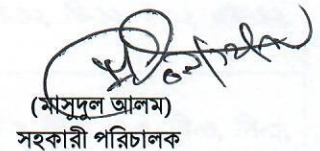 (মাসুদুল আলম)
সহকারী পরিচালক